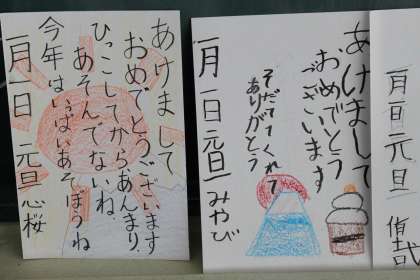 あけまして
おめでとうございます
ひっこしてから、あんまり、
あそんでないね、
今年はいっぱいあそぼうね
一月一日元旦心桜
あけまして
おめでとう
ございます
そだててくれて
ありがとう
一月一日元旦みやび
一月一日元旦
侑哉